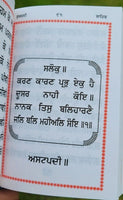 ਸਲੋਕੁ ॥
ਕਰਣ ਕਾਰਣ ਪ੍ਰਭੁ ਏਕੁ ਹੈ
ਦੂਸਰ ਨਾਹੀ ਕੋਇ ॥
ਨਾਨਕ ਤਿਸੁ ਬਲਿਹਾਰਣੈ
ਜਲਿ ਥਲਿ ਮਹੀਅਲਿ ਸੋਇ ॥੧॥
ਅਸਟਪਦੀ ॥